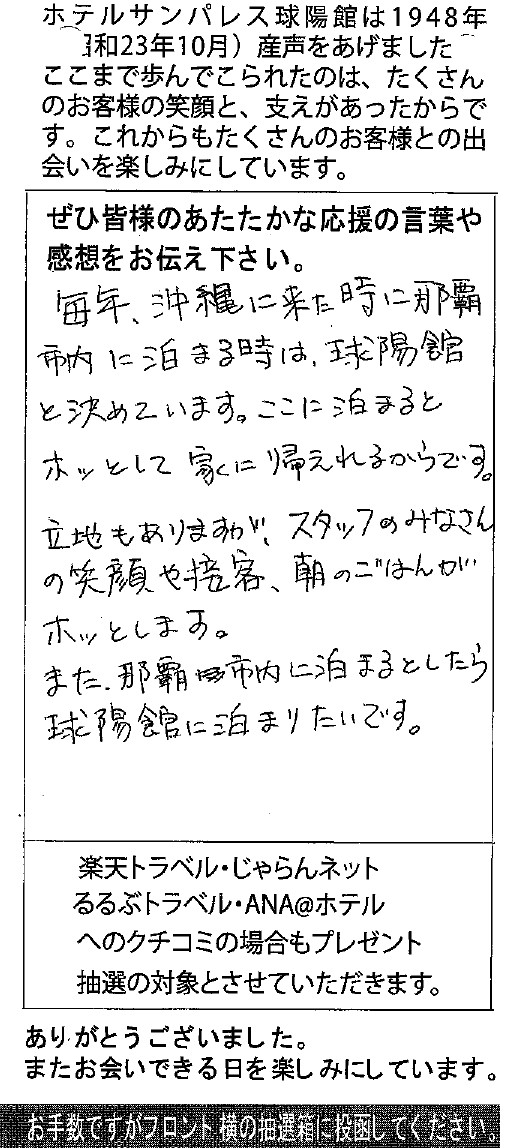 ホテルサンパレス球陽館は1948年
和23年10月）産声をあげました
ここまで歩んでこられたのは、たくさん
のお客様の笑顔と、支えがあったからで
す。これからもたくさんのお客様との出
会いを楽しみにしています。
ぜひ皆様のあたたかな応援の言葉や
感想をお伝え下さい。
毎年、沖縄に来た時に那覇
市内に泊まる時は、球陽館
と決めています。ここに泊まると
ホッとして家に帰えれるからです。
立地もありますが、スタッフのみなさん
の笑顔や接客、朝のごはんが
ホッとします。
また、那覇市内に泊まるとしたら
球陽館に泊まりたいです。
楽天トラベル・じゃらんネット
るるぶトラベル・ANA@ホテル
へのクチコミの場合もプレゼント
抽選の対象とさせていただきます。
ありがとうございました。
またお会いできる日を楽しみにしています。
お手数ですがフロント横の抽選箱に投函してください